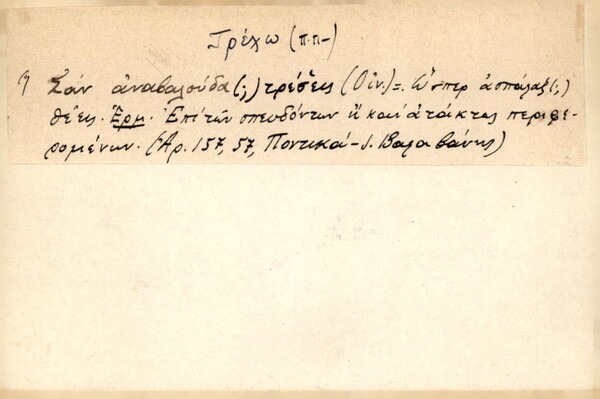 Τρέχω (π.π-)
Σὰν ἀναβαλούδα (;) τρέσεις (Οἰν.) =. Ὥσπερ ἀσπάλαξ (;)
θέεις. Ἑρμ. Ἐπὶ τῶν σπευδόντων ἢ καὶ ἀτάκτως περιφε-
ρομένων. (Ἀρ. 157, 57, Ποντικά - Ι. Βαλαβάνης)